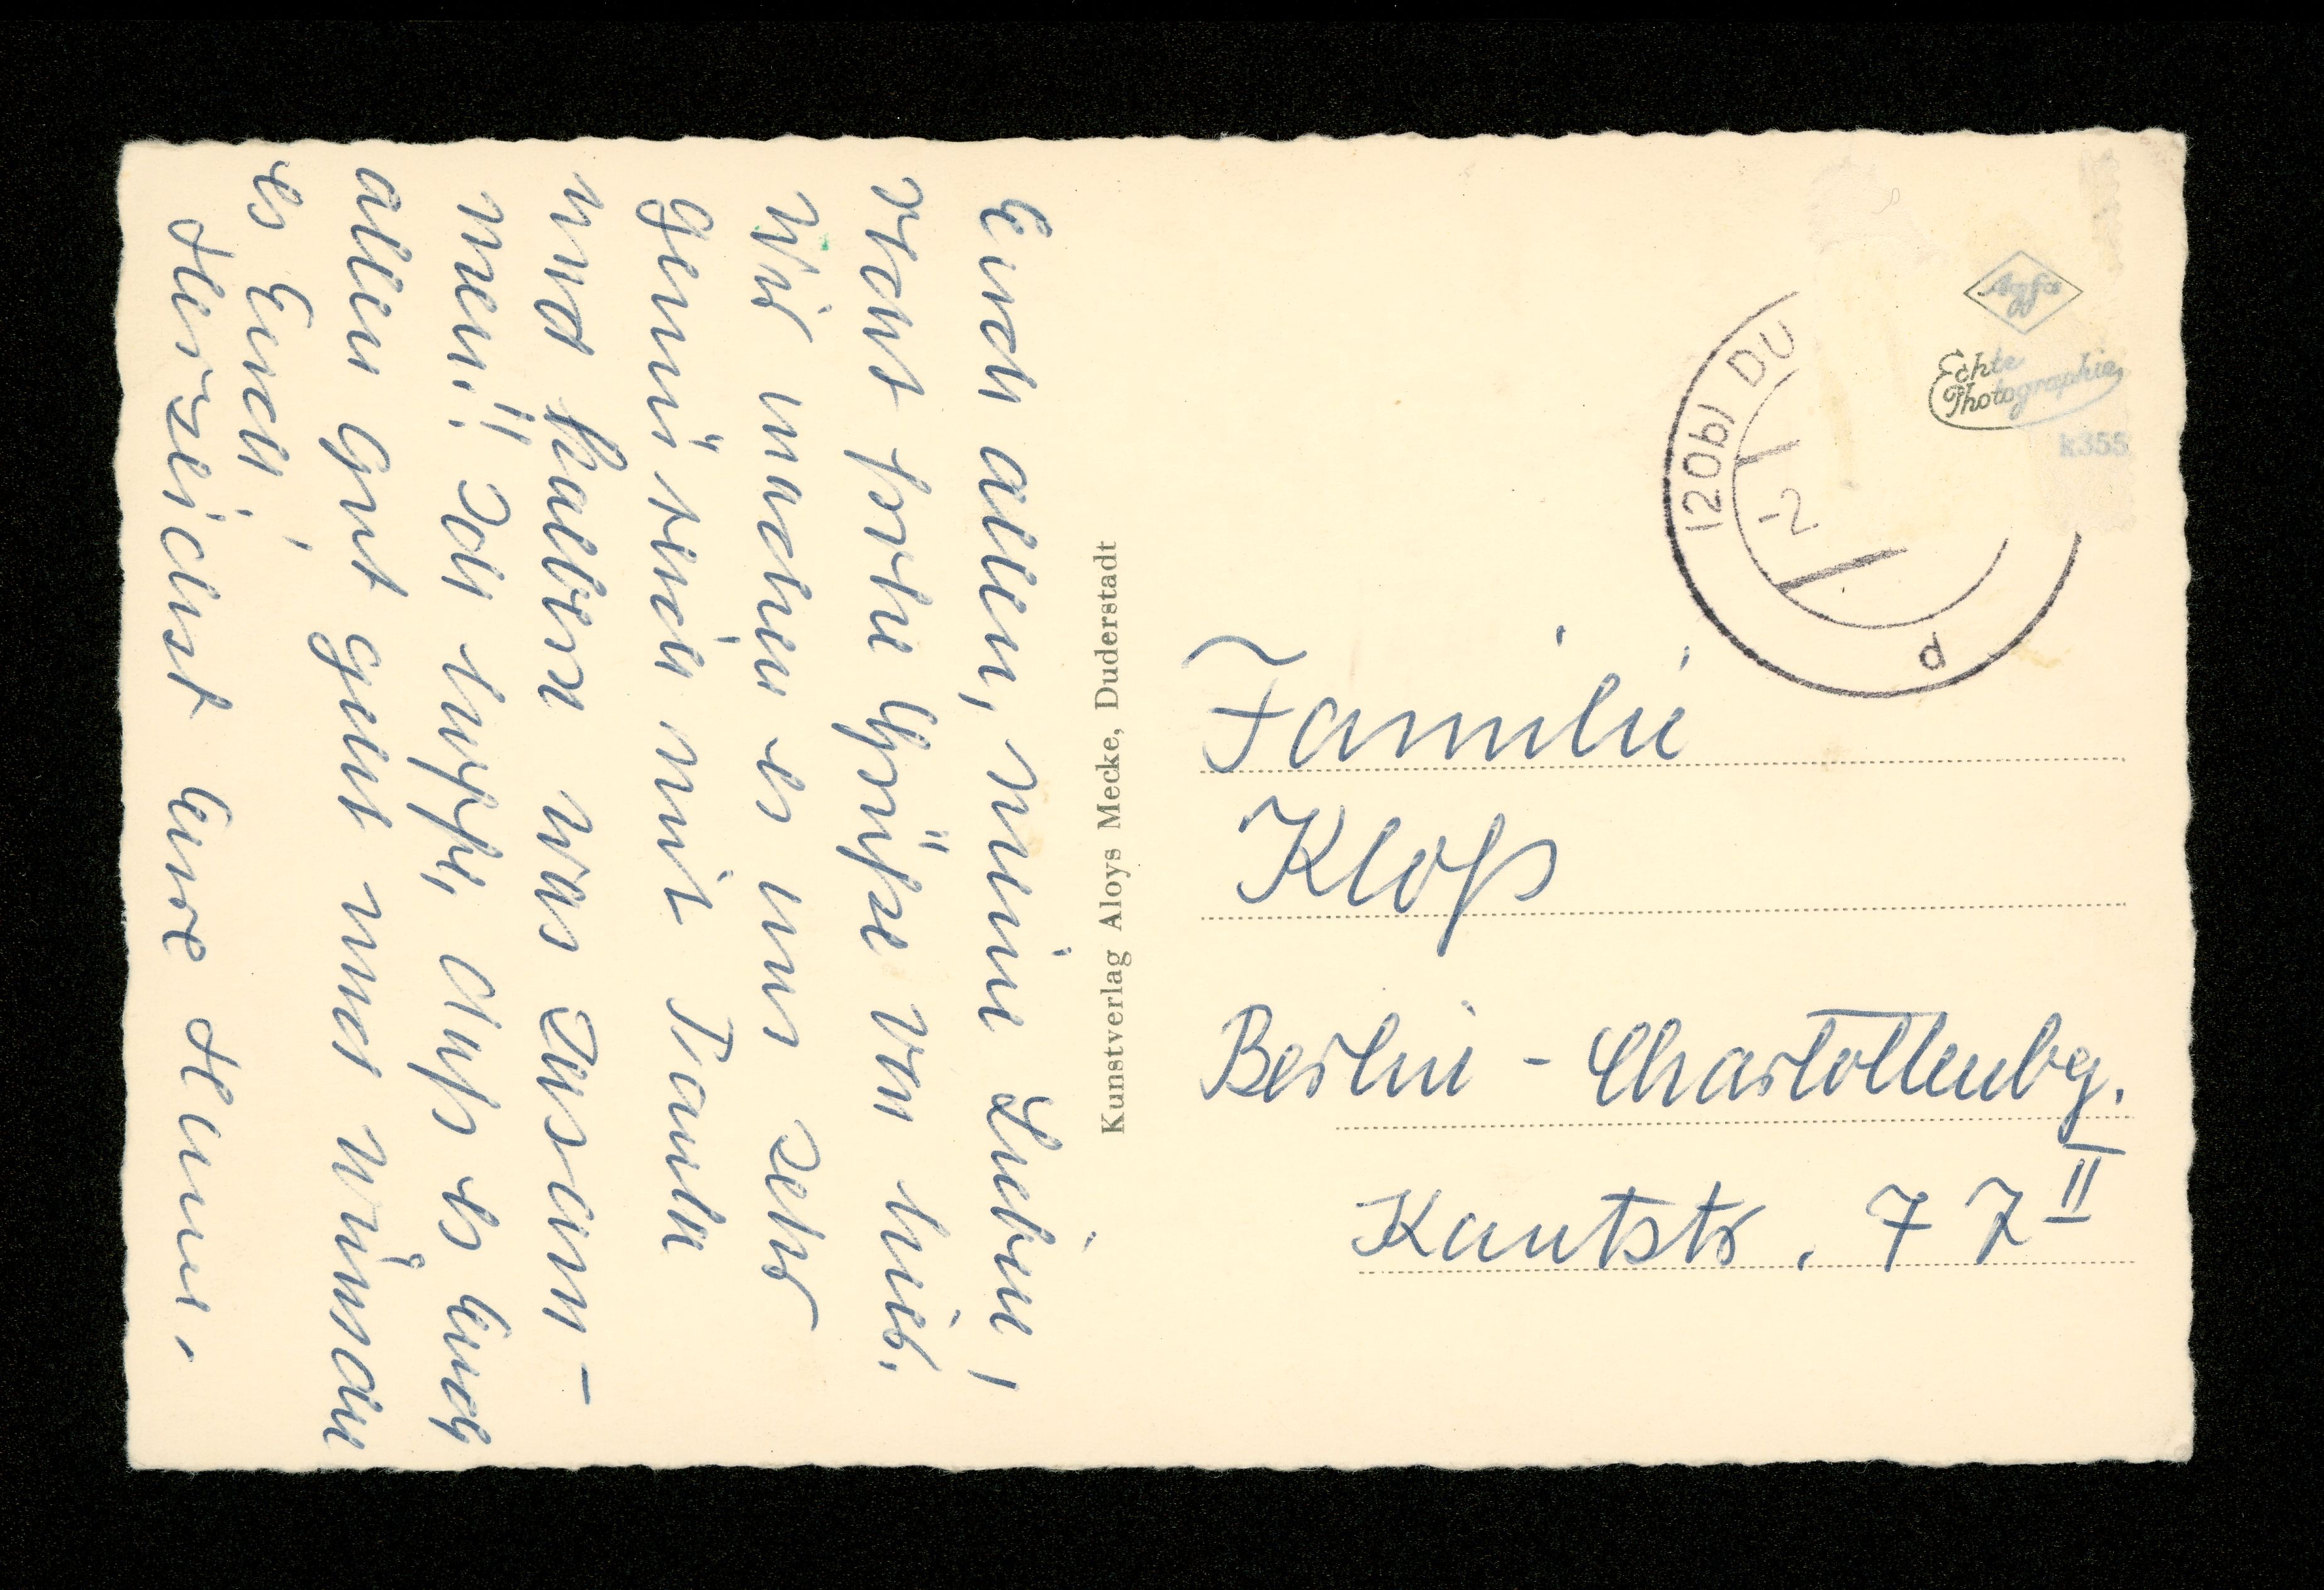 Euch allen, meine Lieben,
recht frohe Grüße von hier.
Wir machen es uns sehr
gemütlich mit Tante
und halten was zusam-
men!! Ich hoffe, daß es Euch
allen gut geht und wünsche
es Euch,
Herzlichst Eure Hanne.
Kunstverlag Aloys Mecke, Duderstadt
Agfa
Echte
Photographie
k355
(20b) DU
d
Familie
Kloß
Berlin - Charlottenbg.
Kantstr. 77 II